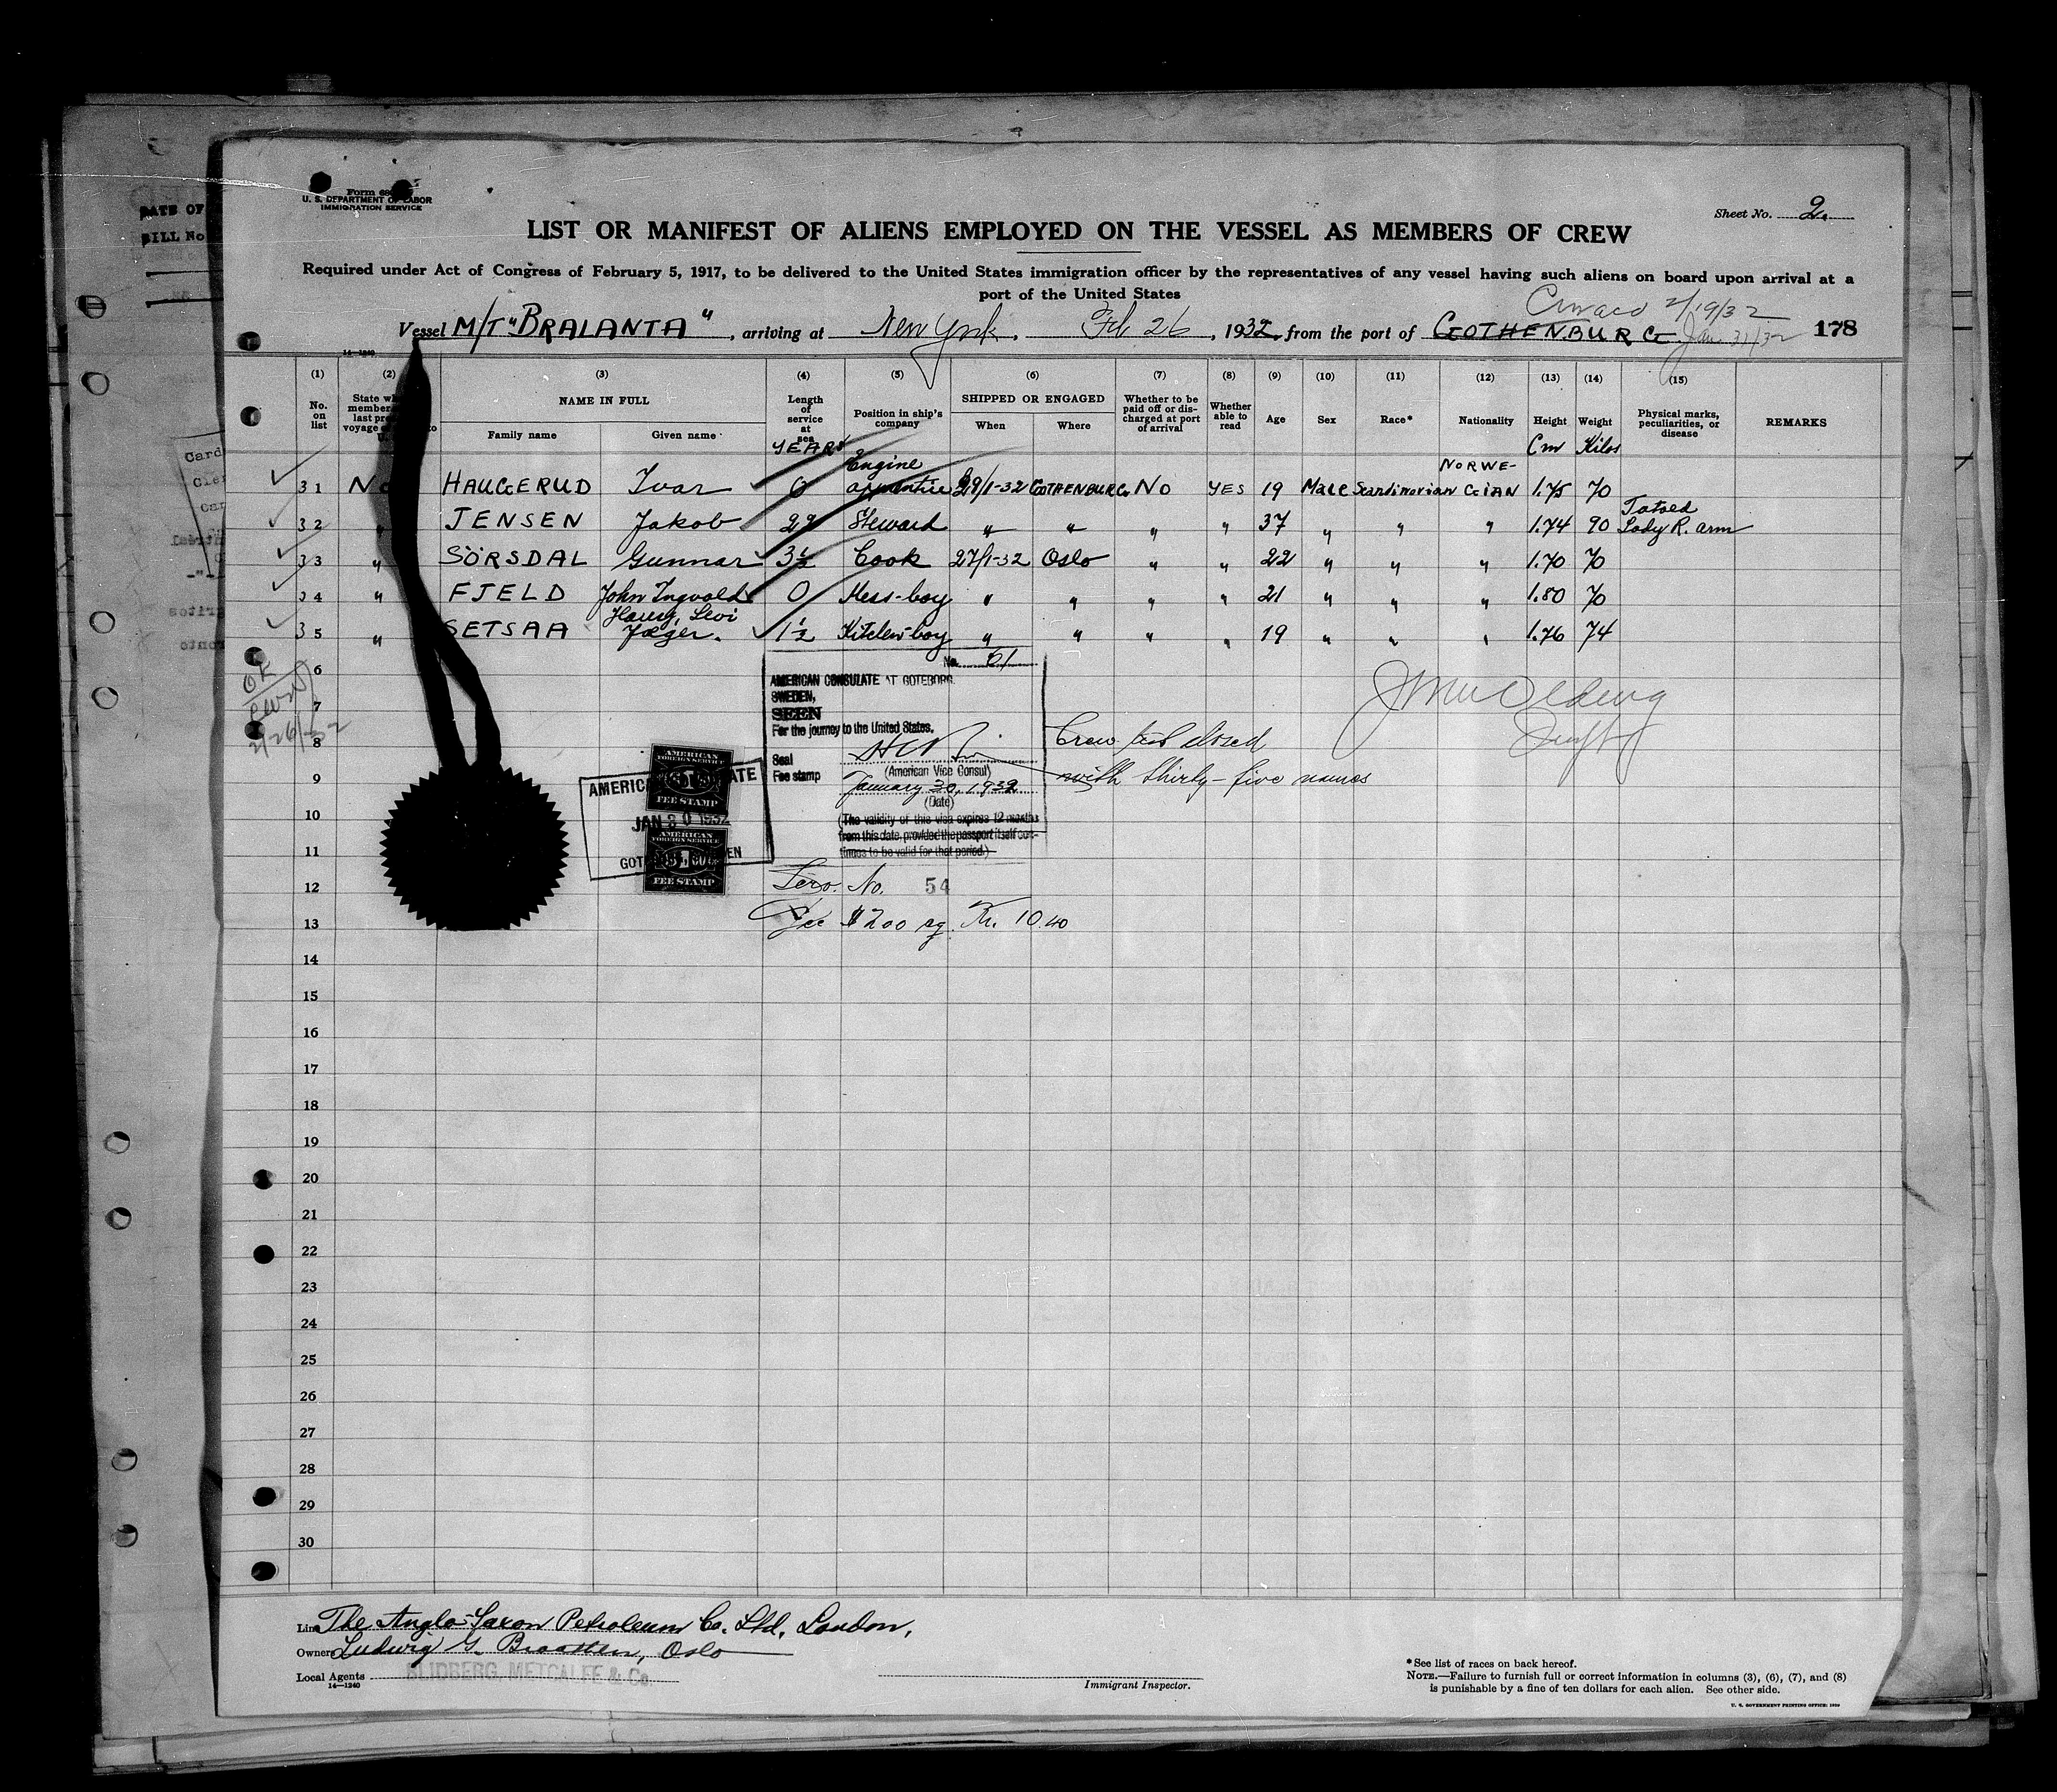 Form 680
U. S. DEPARTMENT OF LABOR
IMMIGRATION SERVICE
Sheet No. 2.
LIST OR MANIFEST OF ALIENS EMPLOYED ON THE VESSEL AS MEMBERS OF CREW
Required under Act of Congress of February 5, 1917, to be delivered to the United States immigration officer by the representatives of any vessel having such aliens on board upon arrival at a
port of the United States
2/19/32
Vessel M/T "BRALANTA", arriving at New York, Feb 26, 1932, from the port of GOTHENBURG Jan. 31/32 178
14—1240
(1) (2) (3) (4) (5) (6) (7) (8) (9) (10) (11) (12) (13) (14) (15)
No. on list
NAME IN FULL
Family name Given name
Length of service at sea
YEARS
Position in ship's company
SHIPPED OR ENGAGED
When Where
Whether to be paid off or discharged at port of arrival
Whether able to read
Age Sex Race* Nationality Height Weight
Cm Kilos
Physical marks, peculiarities, or disease
REMARKS
31 No HAUGERUD Ivar 0 Engine apprentice 29/1-32 GOTHENBURG No YES 19 Male Scandinavian NORWEGIAN 1.75 70
32 " JENSEN Jakob 29 Steward " " " " 37 " " " 1.74 90 Tatoed Lady R. arm
33 " SÖRSDAL Gunnar 3½ Cook 27/1-32 Oslo " " 22 " " " 1.70 70
34 " FJELD John Ingvald 0 Mess-boy " " " " 21 " " " 1.80 70
35 " SETSAA Haug, Levi Jæger. 1½ Kitchen-boy " " " " 19 " " " 1.76 74
6
7
8
9
10
11
12
13
14
15
16
17
18
19
20
21
22
23
24
25
26
27
28
29
30
OK
2/26/32
No. 61
AMERICAN CONSULATE AT GOTEBORG,
SWEDEN,
SEEN
For the journey to the United States.
Seal
(American Vice Consul)
Fee stamp
January 30, 1932
(Date)
(The validity of this visa expires 12 months
from this date, provided the passport itself con-
tinues to be valid for that period.)
Crew list closed
with thirty-five names
AMERICAN
FOREIGN SERVICE
$1
FEE STAMP
JAN 30 1932
AMERICAN
FOREIGN SERVICE
$1
FEE STAMP
Serv. No. 54
Fee $2.00 eq. Kr. 10.40
Line The Anglo-Saxon Petroleum Co. Ltd, London,
Owners Ludwig G. Braathen, Oslo
Local Agents BLIDBERG, METCALFE & Co.
14—1240
Immigrant Inspector.
*See list of races on back hereof.
NOTE.—Failure to furnish full or correct information in columns (3), (6), (7), and (8)
is punishable by a fine of ten dollars for each alien. See other side.